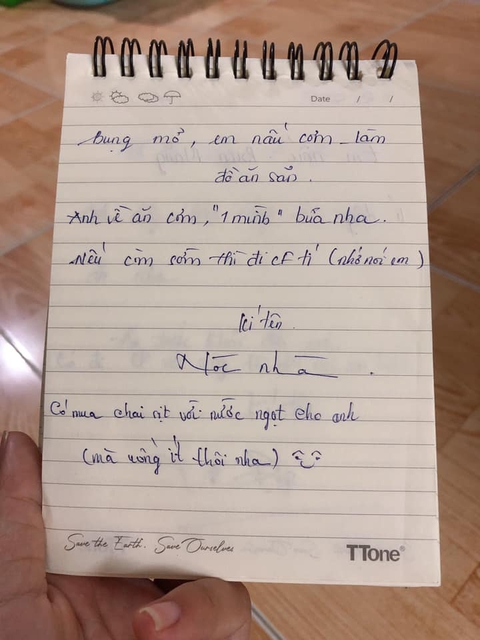 Date / /
Bụng mỏ, em nấu cơm làm
đồ ăn sẵn.
Anh về ăn cơm, "1 mình" bữa nha.
Nếu còn sớm thì đi cf tí (nhớ nói em)
Kí tên
Nóc nhà.
Có mua chai rịt với nước ngọt cho anh
(mà uống ít thôi nha)
Save the Earth. Save Ourselves
TTone®